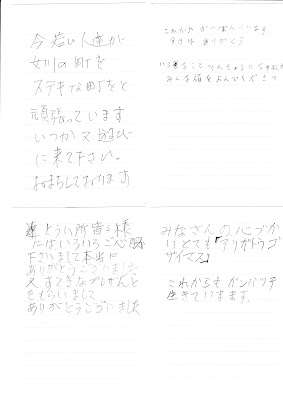 今若い人達が
女川の町を
ステキな町をと
頑張っています
いつか又遊び
に来て下さい。
おまちしております
これから がんばっています
今日は ありがとう
いろ
みんな
とうい所皆々様
にはいろいろご心配
下さいまして本当に
ありがとうございました
又すてきなプレゼント
をもらいまして
ありがとうございました
みなさんの心づか
いとても『アリガトウゴ
ザイマス』
これからもガンバッテ
生きていきます。